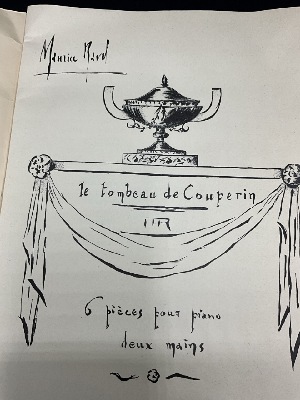 Maurice Ravel
le tombeau de Couperin
6 pièces pour piano
deux mains